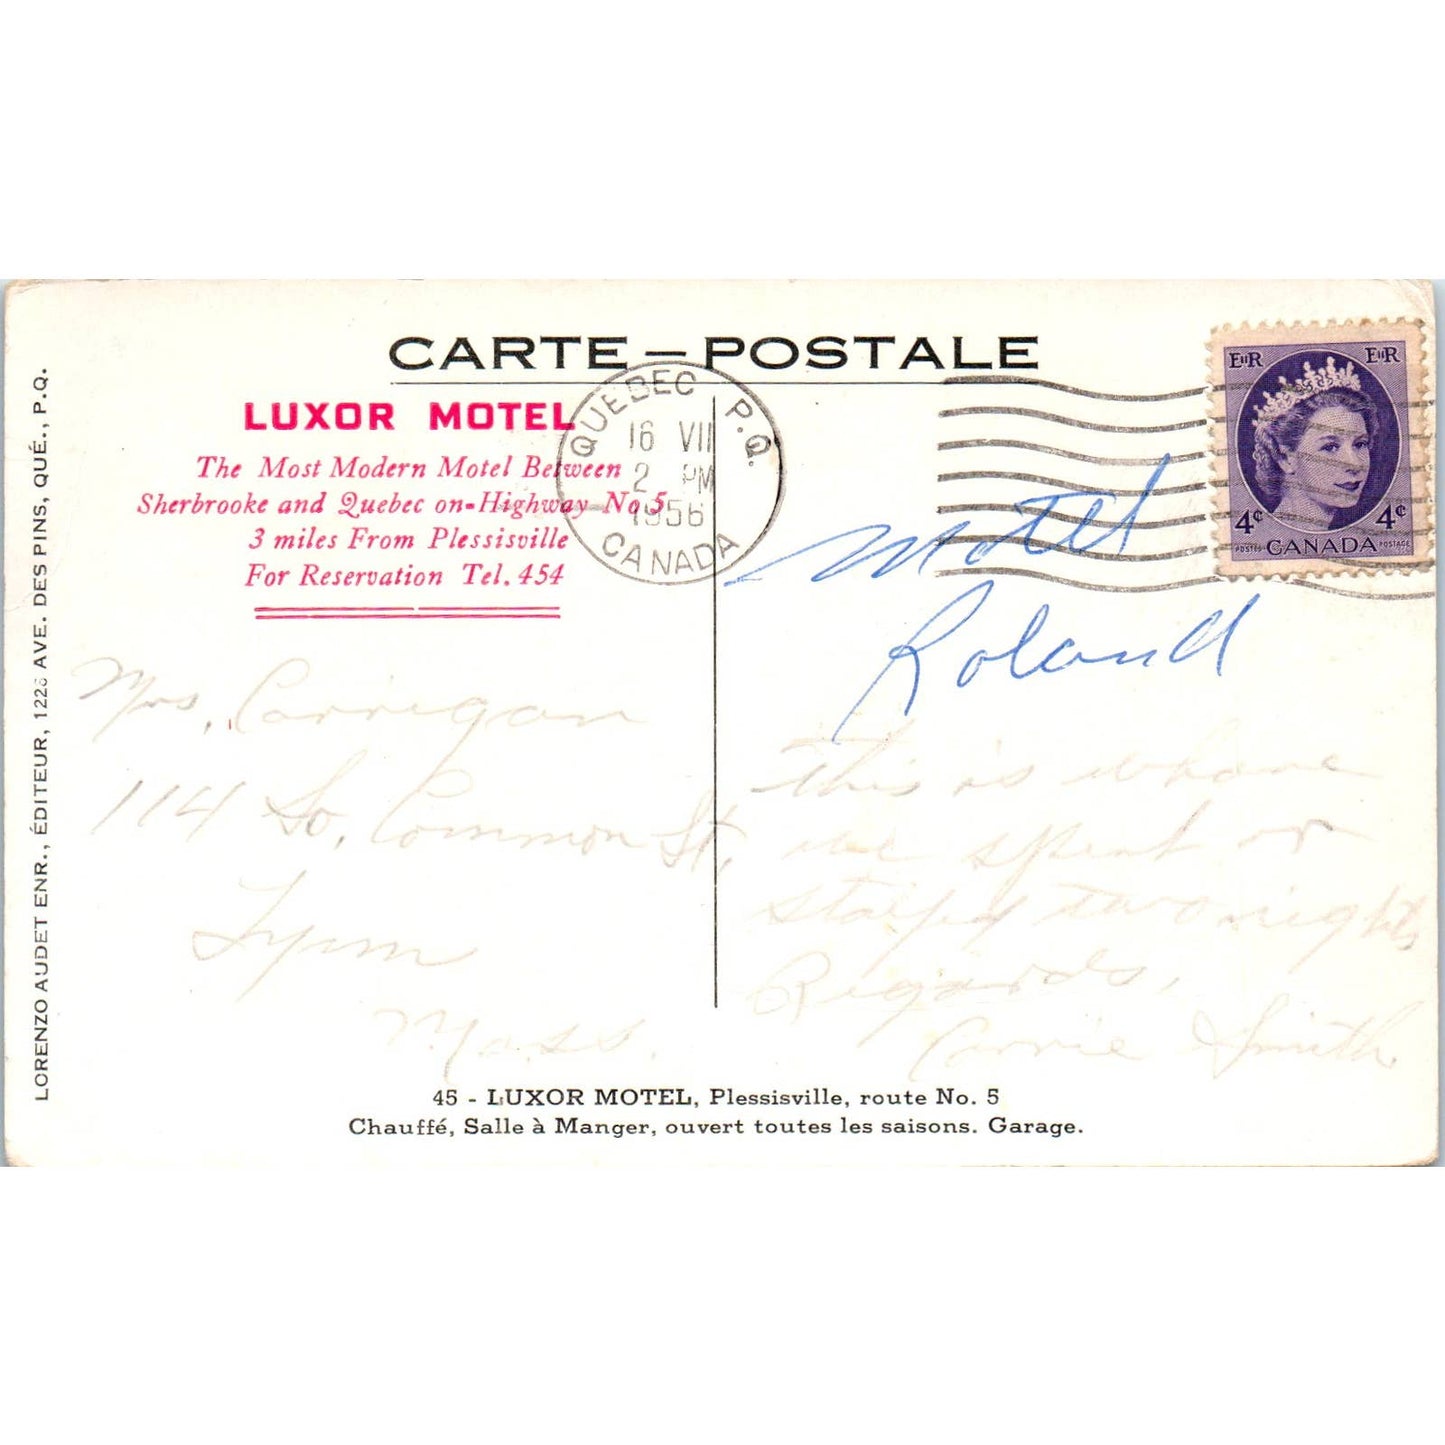 CARTE – POSTALE
LUXOR MOTEL
The Most Modern Motel Between
Sherbrooke and Quebec on-Highway No 5
3 miles From Plessisville
For Reservation Tel. 454
QUEBEC P.Q.
16 VII
2 PM
1956
CANADA
EIIR EIIR
4¢ 4¢
POSTES CANADA POSTAGE
Motel
Roland
Mrs. Corrigan
114 So. Common St.
Lynn
Mass.
This is where
we spent or
stayed two nights
Regards,
Carrie Smith
45 - LUXOR MOTEL, Plessisville, route No. 5
Chauffé, Salle à Manger, ouvert toutes les saisons. Garage.
LORENZO AUDET ENR., ÉDITEUR, 1226 AVE. DES PINS, QUÉ., P.Q.